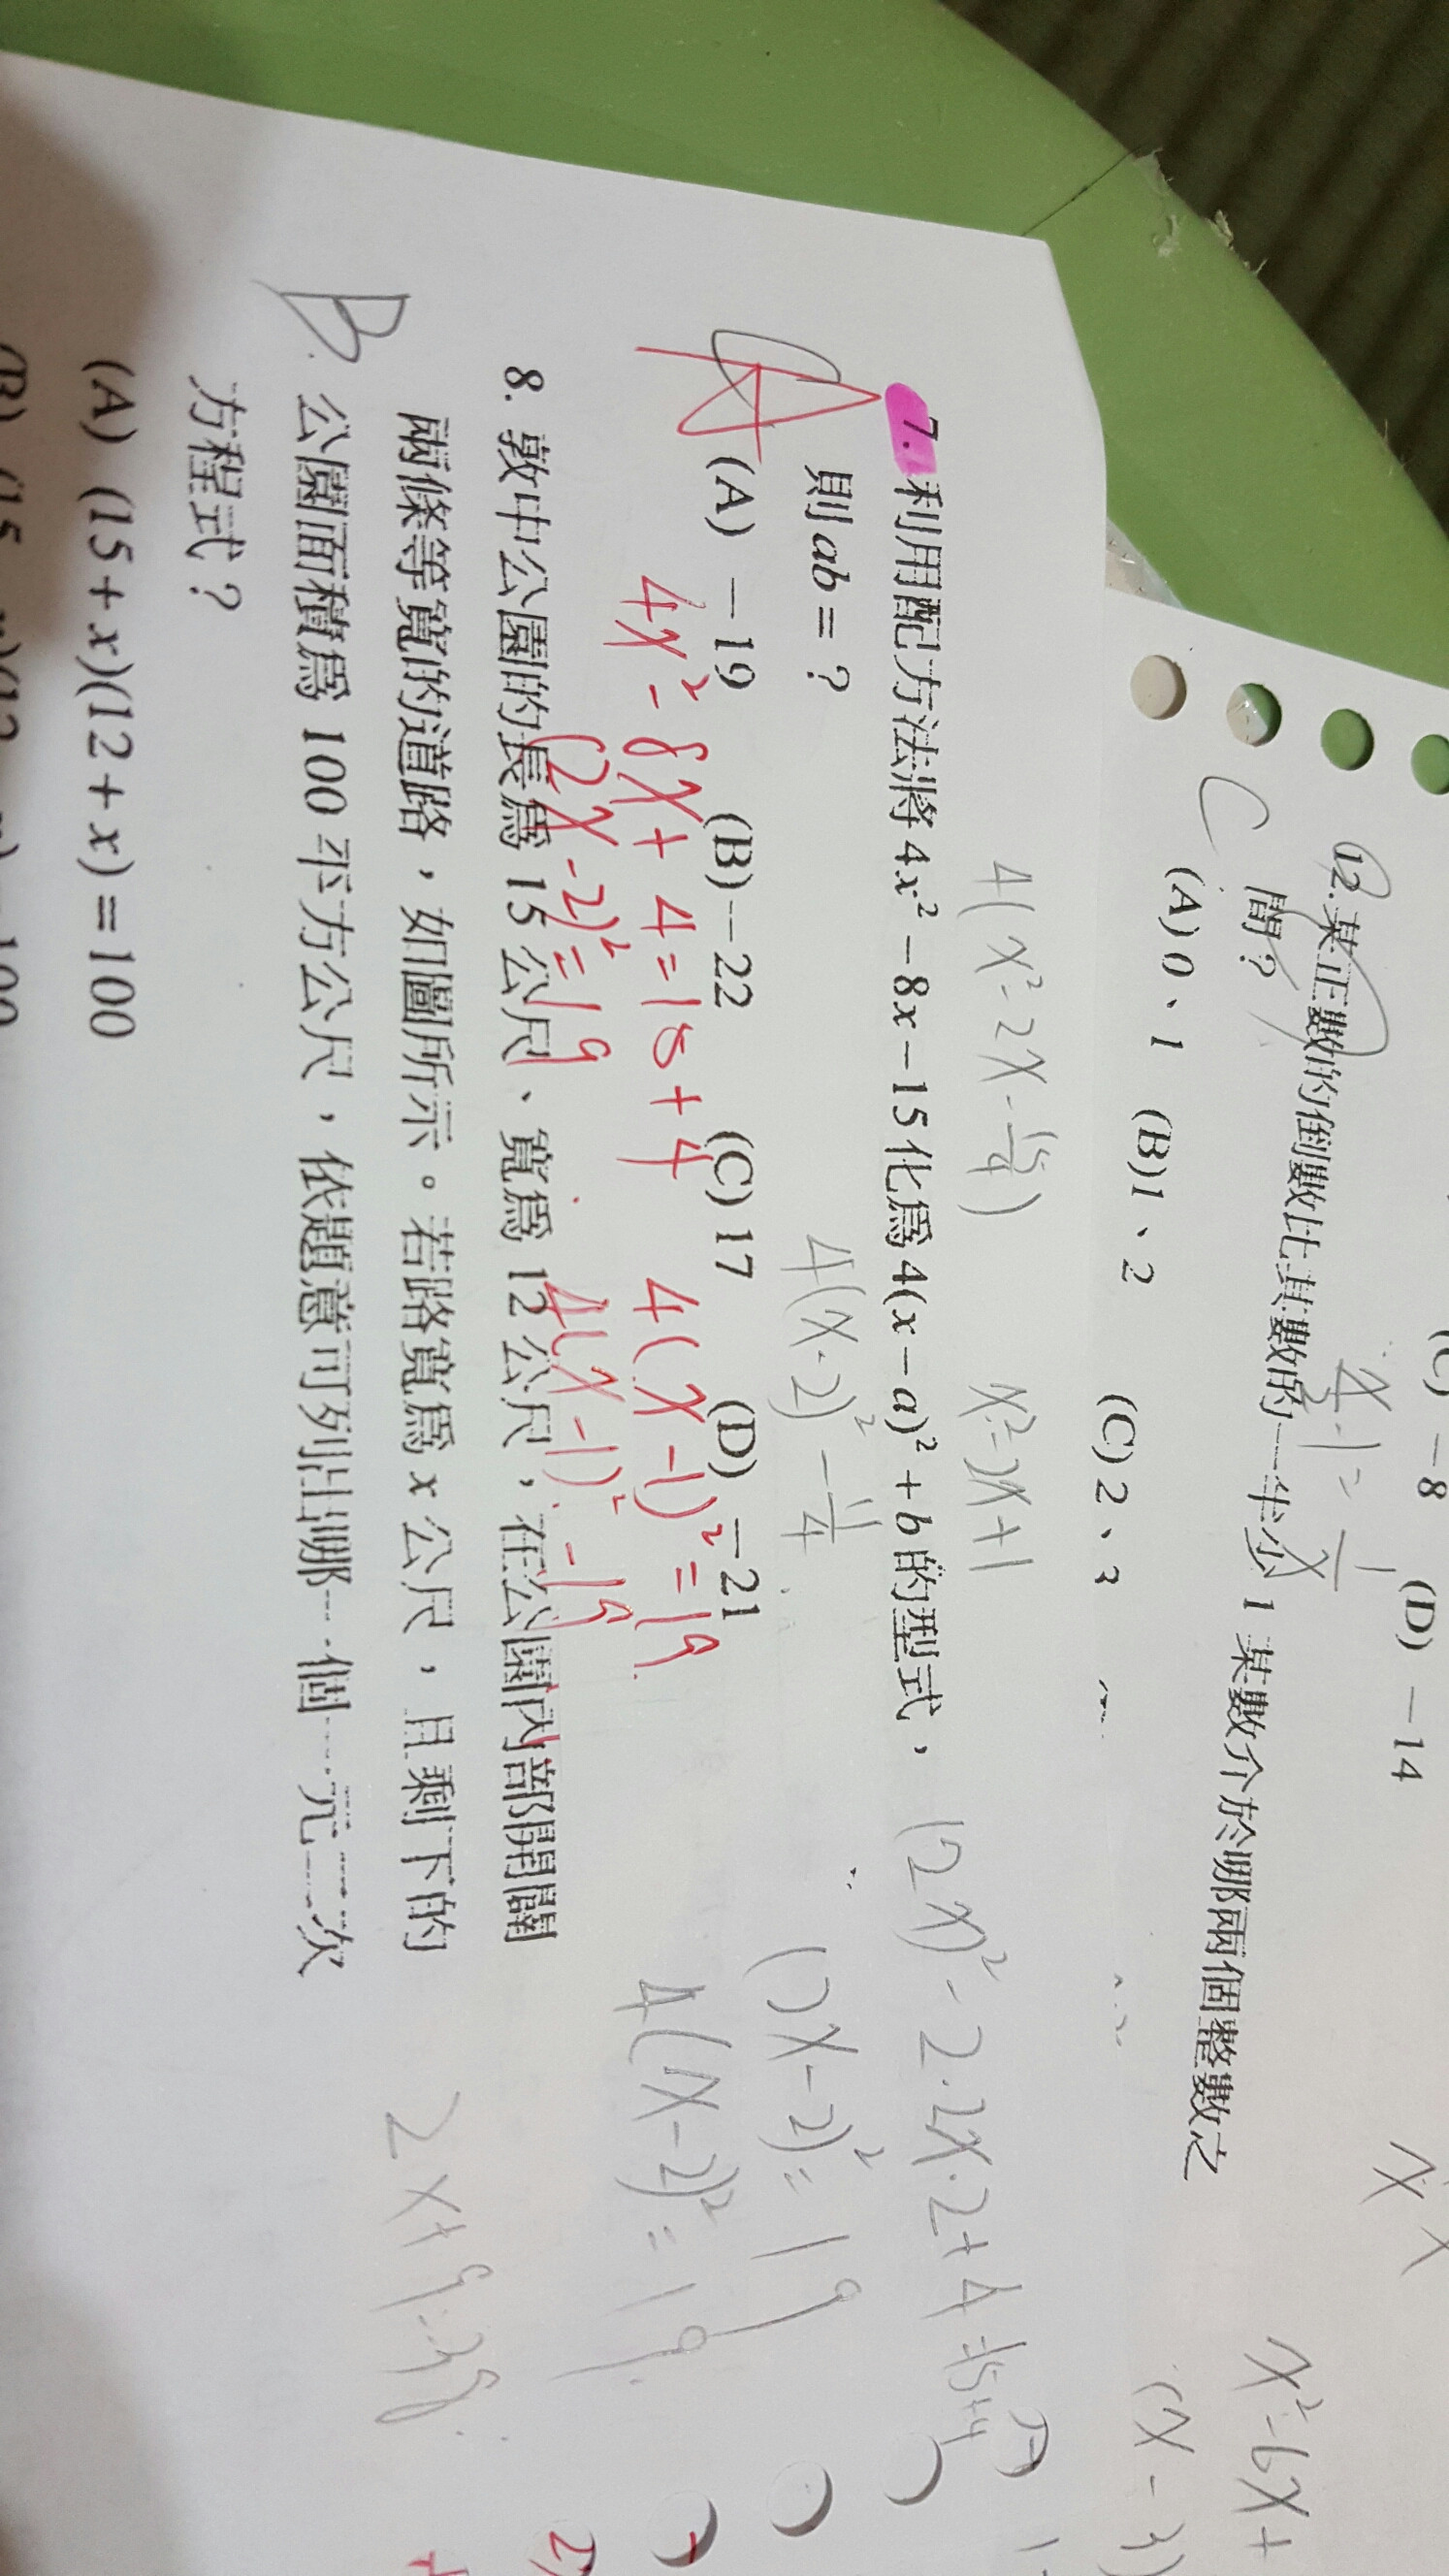 (C) －8 (D) －14
12.某正數的倒數比其數的一半少 1 某數介於哪兩個整數之
間？
C
(A) 0、1 (B) 1、2 (C) 2、3
x²-6x+
(x-3)
4(x²-2x-15/4) x²-2x+1
7. 利用配方法將 4x²－8x－15 化為 4(x－a)²＋b 的型式，
則 ab＝？
4(x-2)²-11/4
(2x)²-2·2x·2+4=15+4
(2x-2)²=19
4(x-2)²=19
A
(A) －19 (B)－22 (C) 17 (D) －21
4x²-8x+4=15+4 4(x-1)²=19
(2x-2)²=19 4(x-1)²-19
8. 敦中公園的長為 15 公尺、寬為 12 公尺，在公園內部開闢
兩條等寬的道路，如圖所示。若路寬為 x 公尺，且剩下的
B
公園面積為 100 平方公尺，依題意可列出哪一個一元二次
方程式？
2x+9=38
(A) (15＋x)(12＋x)＝100